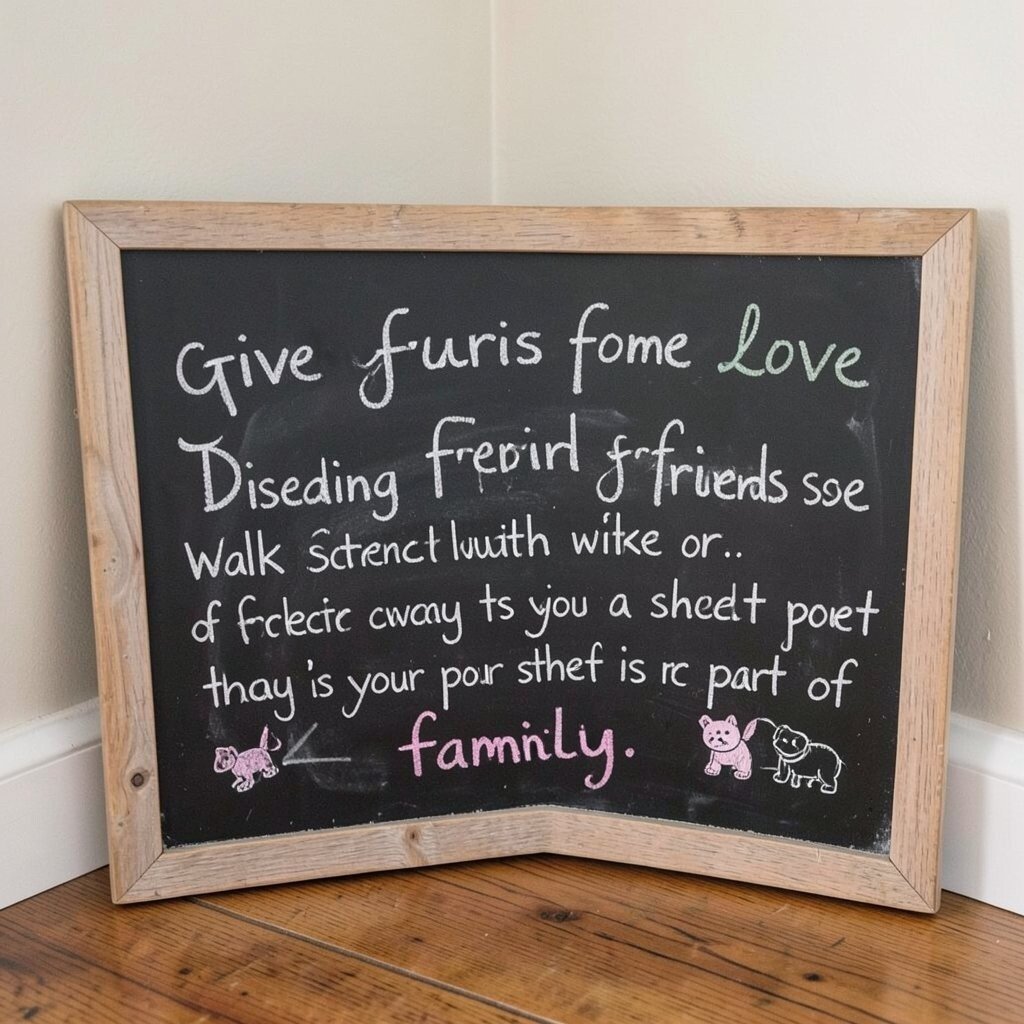 Give furis fome Love
Diseding frepirl friends sse
Walk Sctenct with witke or..
of frclectc cwcay ts you a shedt poet
thay is your por sthef is rc part of
famnily.